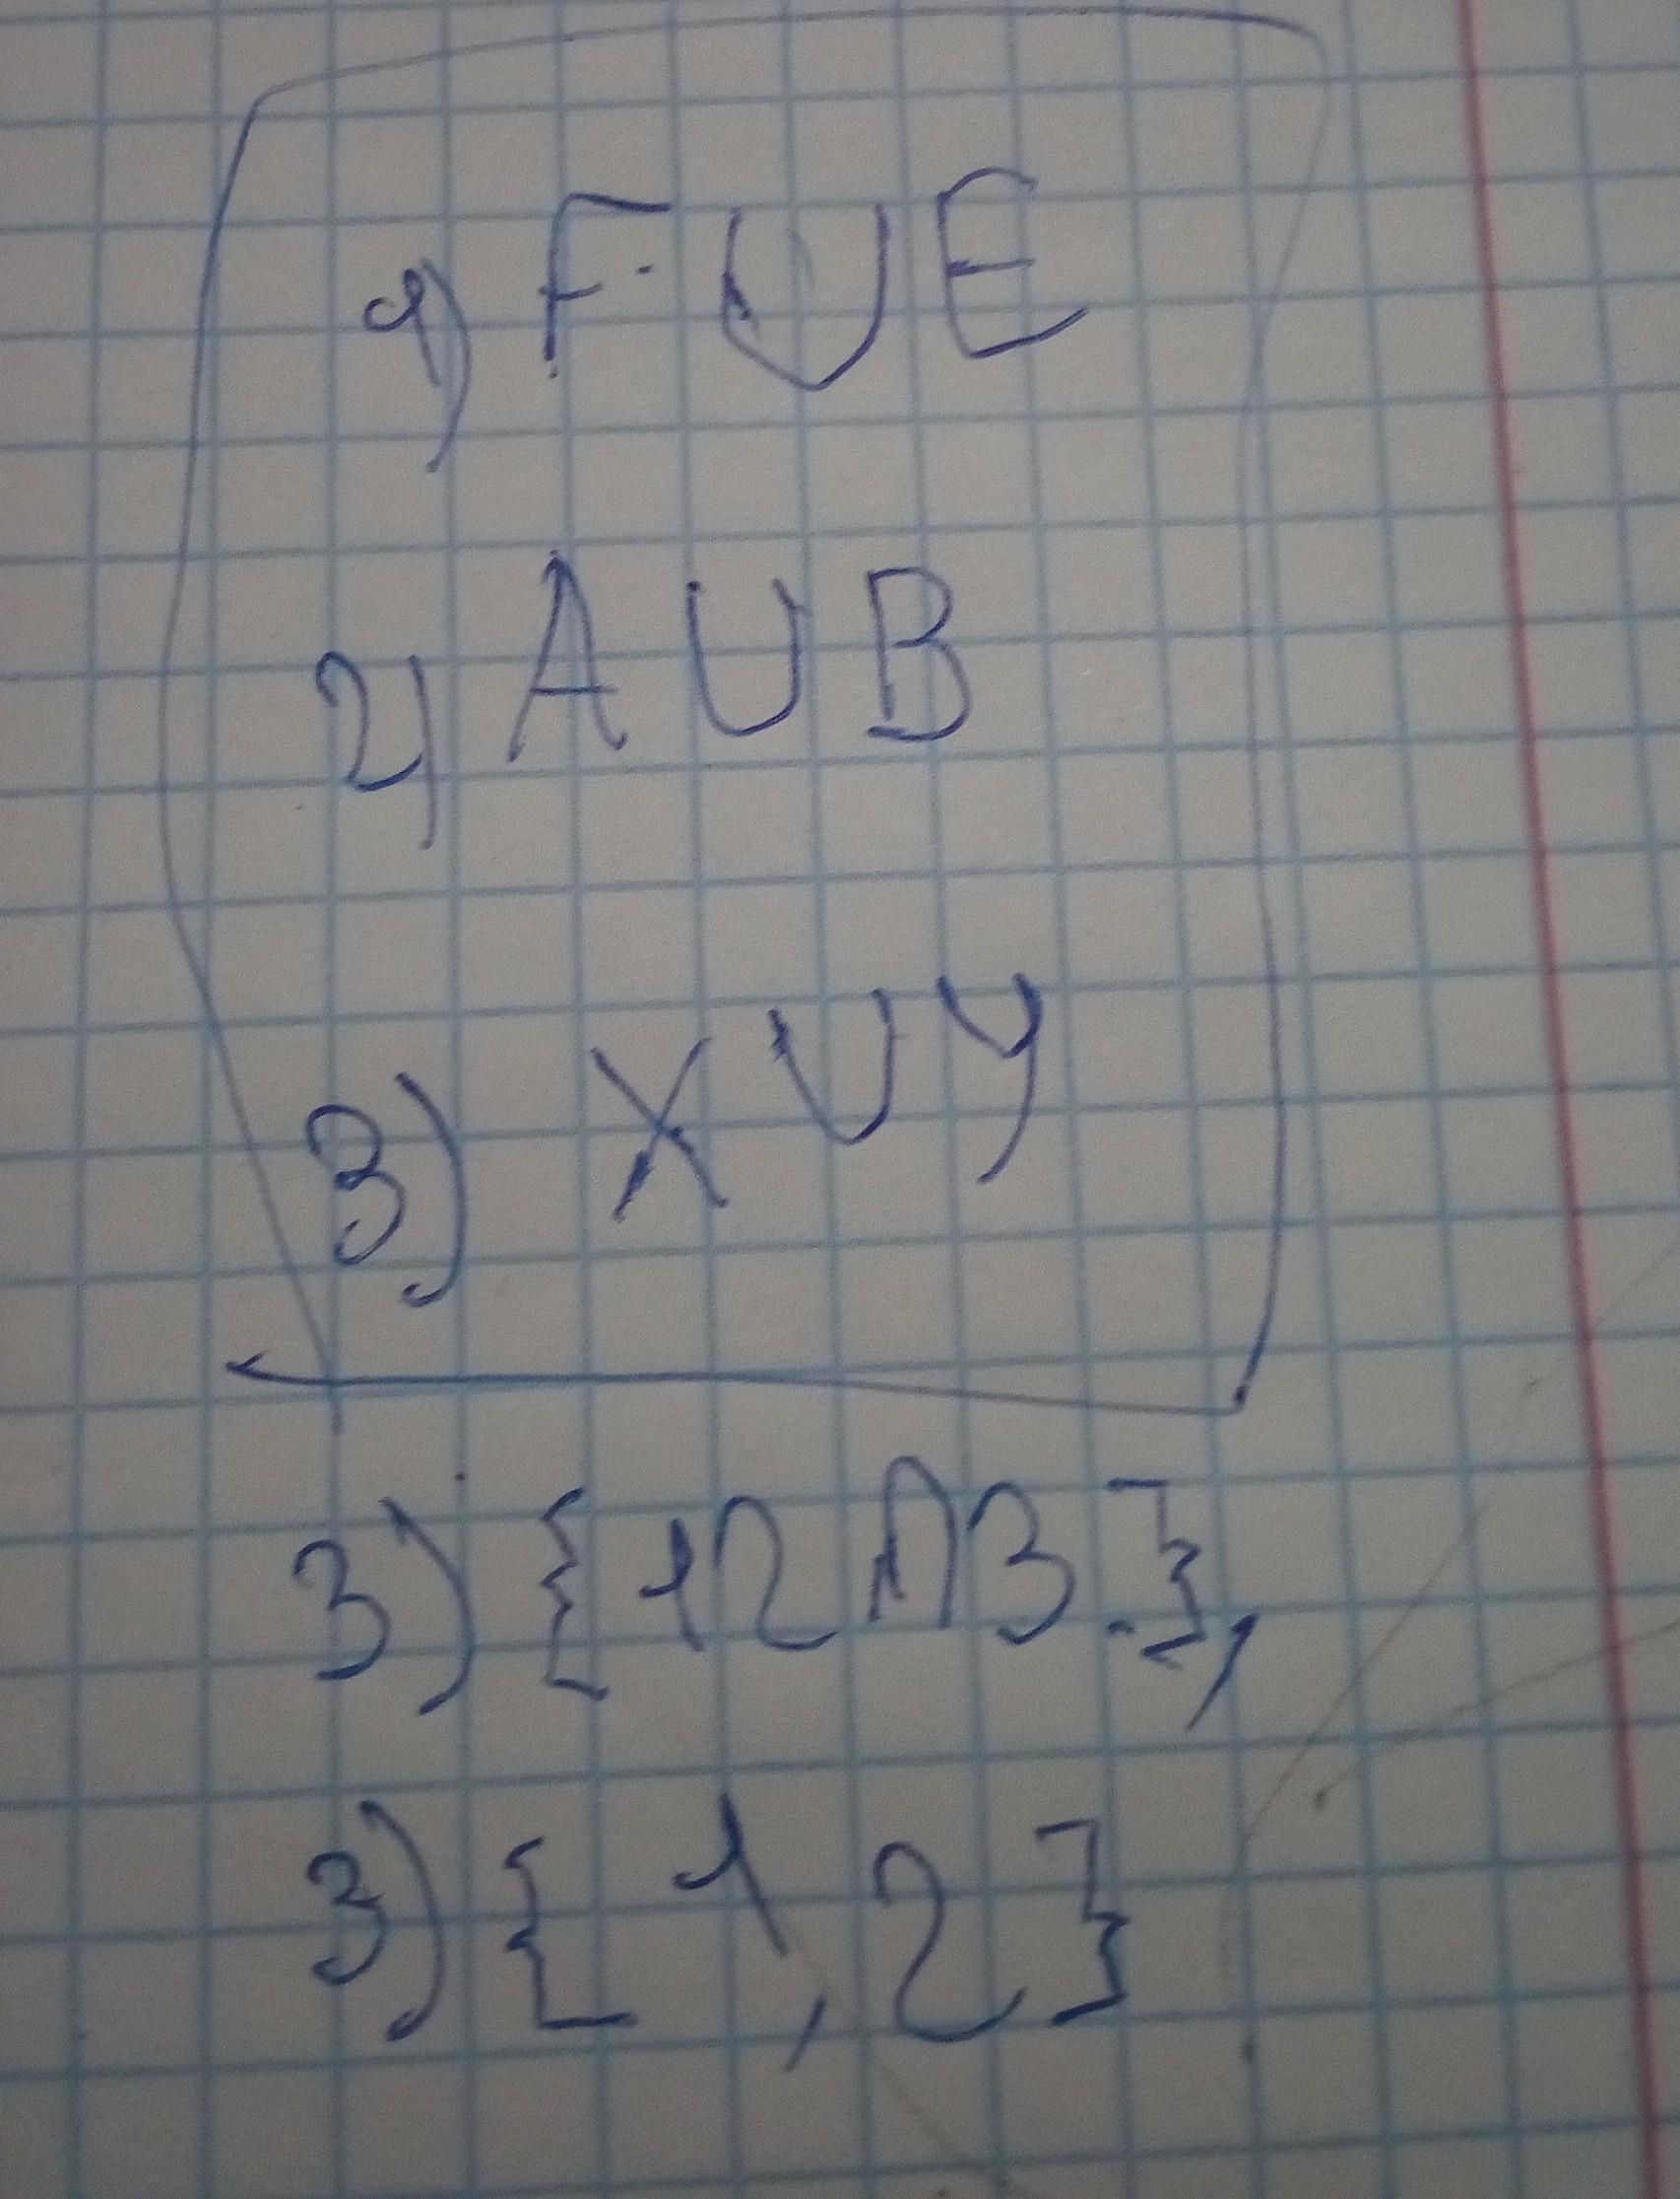 1) F ∪ E
2) A ∪ B
3) X ∪ Y
3) {12 ∩ 3.},
3) {1, 2}